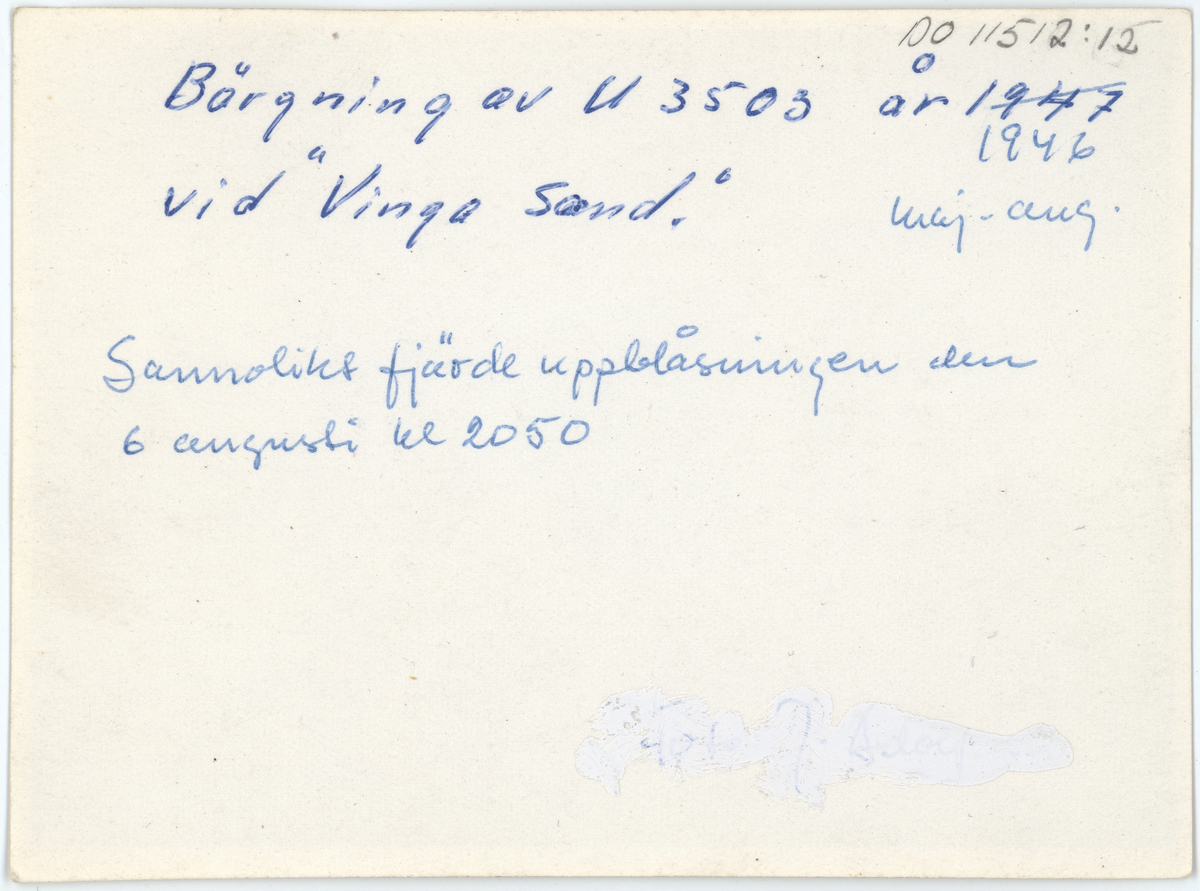 DO 11512:12
Bärgning av U 3503 år 1947
1946
vid "Vinga Sand."
maj-aug.
Sannolikt fjärde uppblåsningen den
6 augusti kl 2050
Foto J.